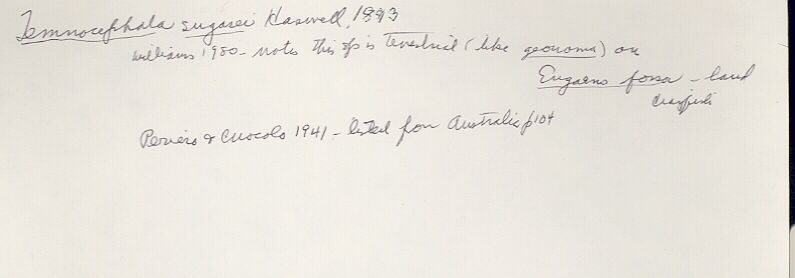 Temnocephala engaei Haswell, 1893
Williams 1980 - notes this sp is terrestrial (like geonoma) on
Engaeus fossor - land
crayfish
Pereira & Cuocolo 1941 - listed from Australia p104